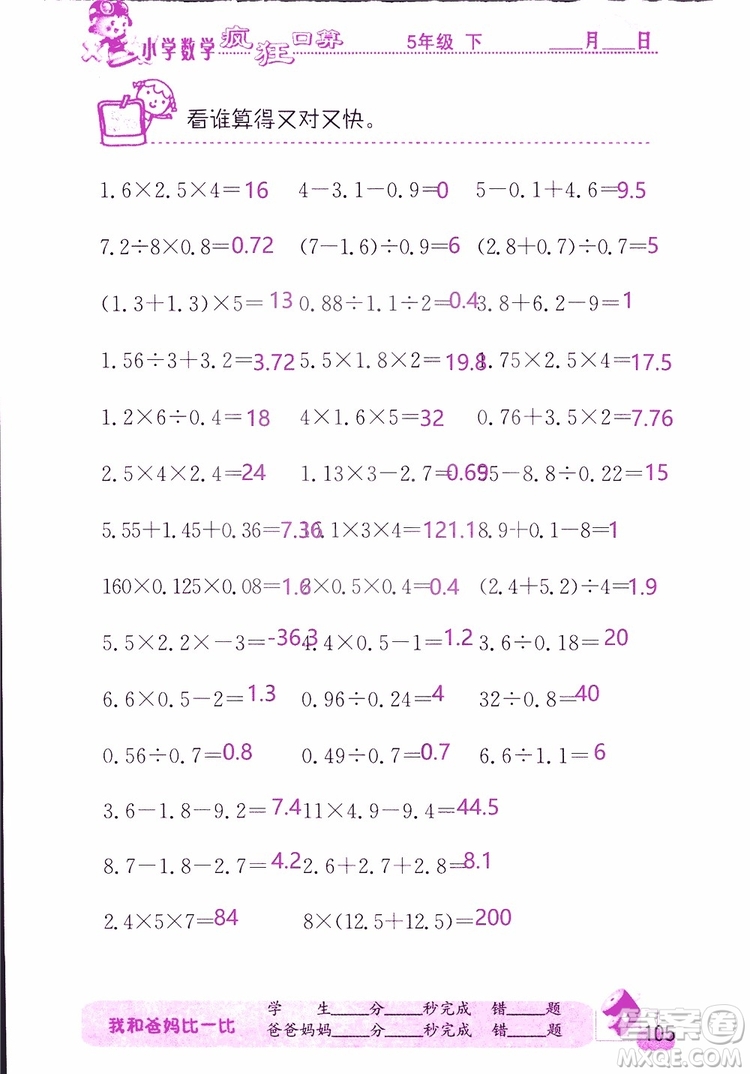 小学数学 疯狂口算 5年级 下 ____月____日
看谁算得又对又快。
1.6×2.5×4=16 4-3.1-0.9=0 5-0.1+4.6=9.5
7.2÷8×0.8=0.72 (7-1.6)÷0.9=6 (2.8+0.7)÷0.7=5
(1.3+1.3)×5=13 0.88÷1.1÷2=0.4 3.8+6.2-9=1
1.56÷3+3.2=3.72 5.5×1.8×2=19.8 1.75×2.5×4=17.5
1.2×6÷0.4=18 4×1.6×5=32 0.76+3.5×2=7.76
2.5×4×2.4=24 1.13×3-2.7=0.69 5-8.8÷0.88=15
5.55+1.45+0.36=7.36 .1×3×4=121.1 8.9+0.1-8=1
160×0.125×0.08=1.6 ×0.5×0.4=0.4 (2.4+5.2)÷4=1.9
5.5×2.2×-3=-36.3 4.4×0.5-1=1.2 3.6÷0.18=20
6.6×0.5-2=1.3 0.96÷0.24=4 32÷0.8=40
0.56÷0.7=0.8 0.49÷0.7=0.7 6.6÷1.1=6
3.6-1.8-9.2=7.4 11×4.9-9.4=44.5
8.7-1.8-2.7=4.2 2.6+2.7+2.8=8.1
2.4×5×7=84 8×(12.5+12.5)=200
我和爸妈比一比
学 生____分____秒完成 错____题
爸爸妈妈____分____秒完成 错____题
105
答案圈